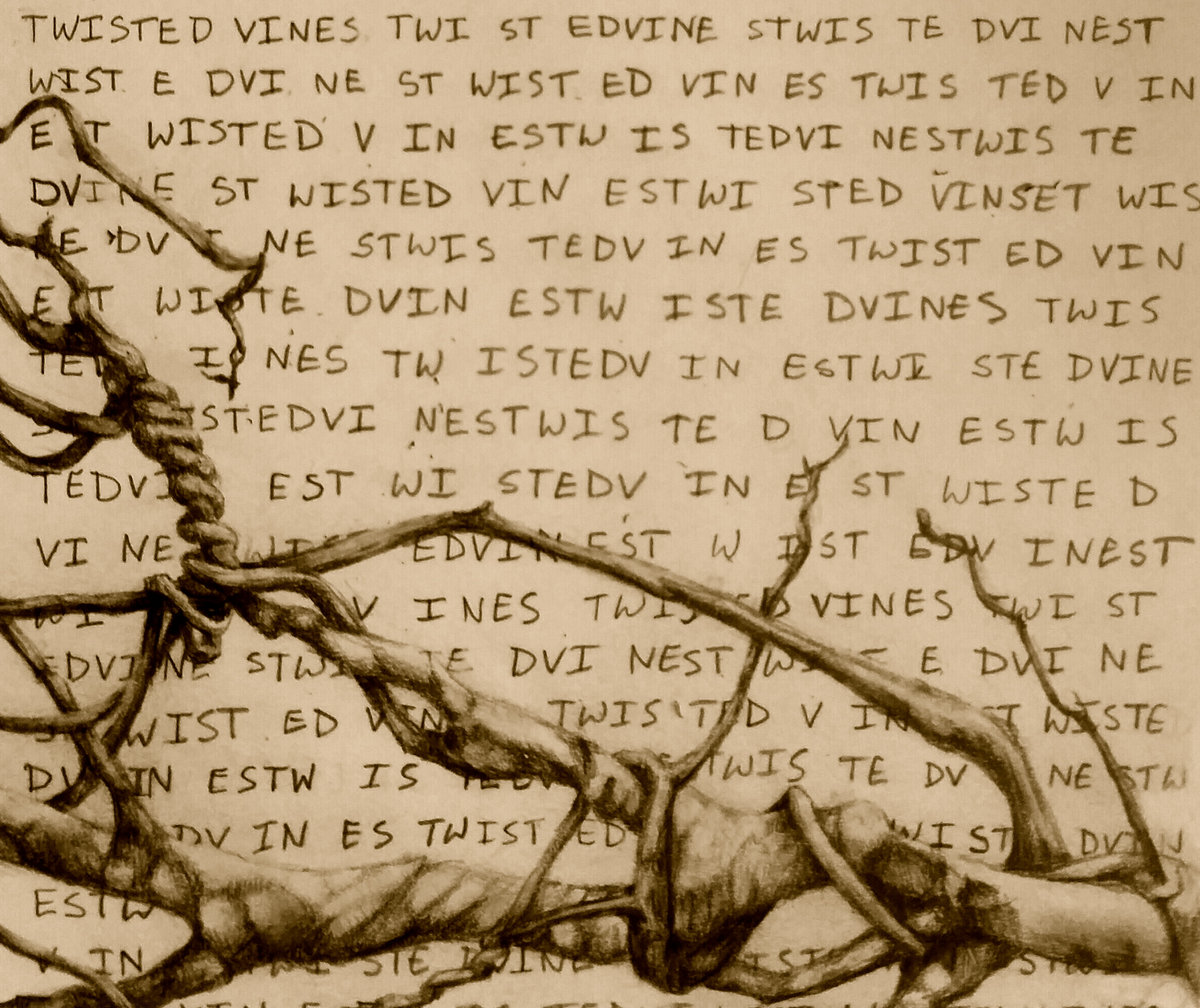 TWISTED VINES TWI ST EDVINE STWIS TE DVI NEST
WIST E DVI NE ST WIST ED VIN ES TWIS TED V IN
E T WISTED V IN ESTW IS TEDVI NESTWIS TE
DVINE ST WISTED VIN ESTWI STED VINSET WIS
TE DV I NE STWIS TEDV IN ES TWIST ED VIN
E ST WISTE DVIN ESTW ISTE DVINES TWIS
NES TW ISTEDV IN ESTWI STE DVINE
ISTEDVI NESTWIS TE D VIN ESTW IS
TEDVI EST WI STEDV IN E ST WISTE D
VI NE EDVIN EST W IST EDV INEST
WI V INES TWISTED VINES TWI ST
EDVI NE STWI TE DVI NEST E DVI NE
WIST ED VIN TWIS TED V IN WISTE
DV IN ESTW IS TWIS TE DV NE STW
DV IN ES TWIST ED WIST DVIN
ESTW
V IN STE DVINE